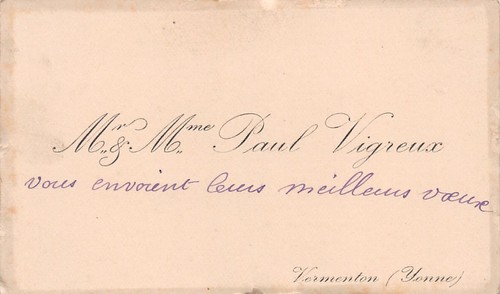 Mr. & Mme. Paul Vigreux
vous envoient leurs meilleurs vœux
Vermenton (Yonne)